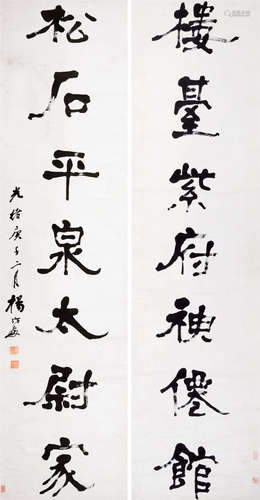 樓臺紫府神僊館
松石平泉太尉家
光緒庚子二月 楊